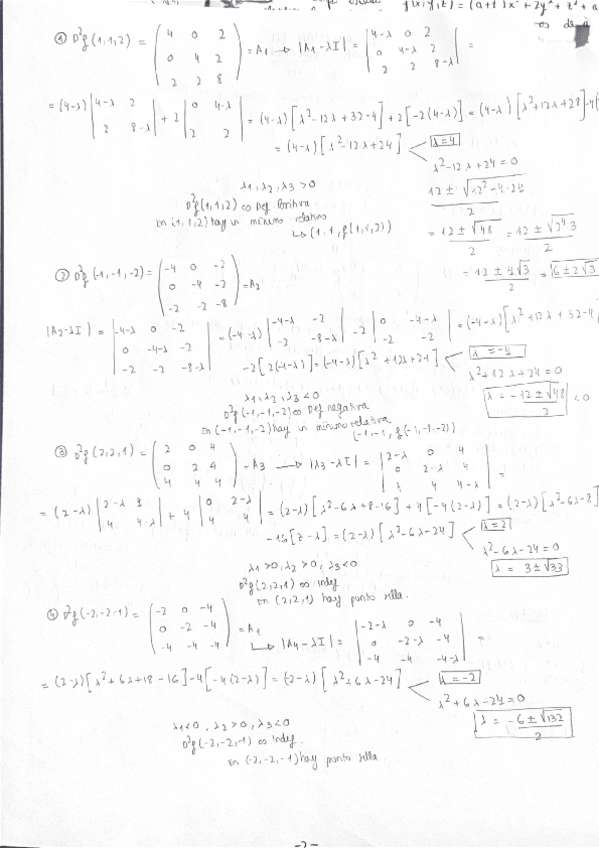 f(x,y,z) = (a+1)x² + 2y² + z² + a
① D²f(1,1,2) = ( 4 0 2 ; 0 4 2 ; 2 2 8 ) = A₁ → |A₁-λI| = | 4-λ 0 2 ; 0 4-λ 2 ; 2 2 8-λ | =
= (4-λ) | 4-λ 2 ; 2 8-λ | + 2 | 0 4-λ ; 2 2 | = (4-λ)[λ²-12λ+32-4] + 2[-2(4-λ)] = (4-λ)[λ²-12λ+28]-4(
= (4-λ)[λ²-12λ+24] λ=4
λ²-12λ+24=0
λ₁, λ₂, λ₃ > 0
12 ± √12²-4·24 / 2
D²f(1,1,2) es Def Positiva
En (1,1,2) hay un mínimo relativo
↳ (1,1,f(1,1,2))
= 12±√48 / 2 = 12±√2⁴3 / 2
= 12±4√3 / 2 = 6±2√3
② D²f(-1,-1,-2) = ( -4 0 -2 ; 0 -4 -2 ; -2 -2 -8 ) = A₂
|A₂-λI| = | -4-λ 0 -2 ; 0 -4-λ -2 ; -2 -2 -8-λ | = (-4-λ) | -4-λ -2 ; -2 -8-λ | -2 | 0 -4-λ ; -2 -2 | = (-4-λ)[λ²+12λ+32-4
-2[2(-4-λ)] = (-4-λ)[λ²+12λ+24] λ=-4
λ²+12λ+24=0
λ = -12±√48 / 2 < 0
λ₁, λ₂, λ₃ < 0
D²f(-1,-1,-2) es Def negativa
En (-1,-1,-2) hay un mínimo relativo
(-1,-1,f(-1,-1,-2))
③ D²f(2,2,1) = ( 2 0 4 ; 0 2 4 ; 4 4 4 ) = A₃ → |A₃-λI| = | 2-λ 0 4 ; 0 2-λ 4 ; 4 4-λ | =
= (2-λ) | 2-λ ; 4 4-λ | + 4 | 0 2-λ ; 4 4 | = (2-λ)[λ²-6λ+8-16] + 4[-4(2-λ)] = (2-λ)[λ²-6λ-8]
-16[2-λ] = (2-λ)[λ²-6λ-24] λ=2
λ²-6λ-24=0
λ = 3±√33
λ₁>0, λ₂>0, λ₃<0
D²f(2,2,1) es indef
En (2,2,1) hay punto silla.
④ D²f(-2,-2,-1) = ( -2 0 -4 ; 0 -2 -4 ; -4 -4 -4 ) = A₄
↳ |A₄-λI| = | -2-λ 0 -4 ; 0 -2-λ -4 ; -4 -4 -4-λ | =
= (2-λ)[λ²+6λ+18-16]-4[-4(-2-λ)] = (-2-λ)[λ²+6λ-24] λ=-2
λ²+6λ-24=0
λ = -6±√132 / 2
λ₁<0, λ₂>0, λ₃<0
D²f(-2,-2,-1) es indef.
En (-2,-2,-1) hay punto silla.
-2-